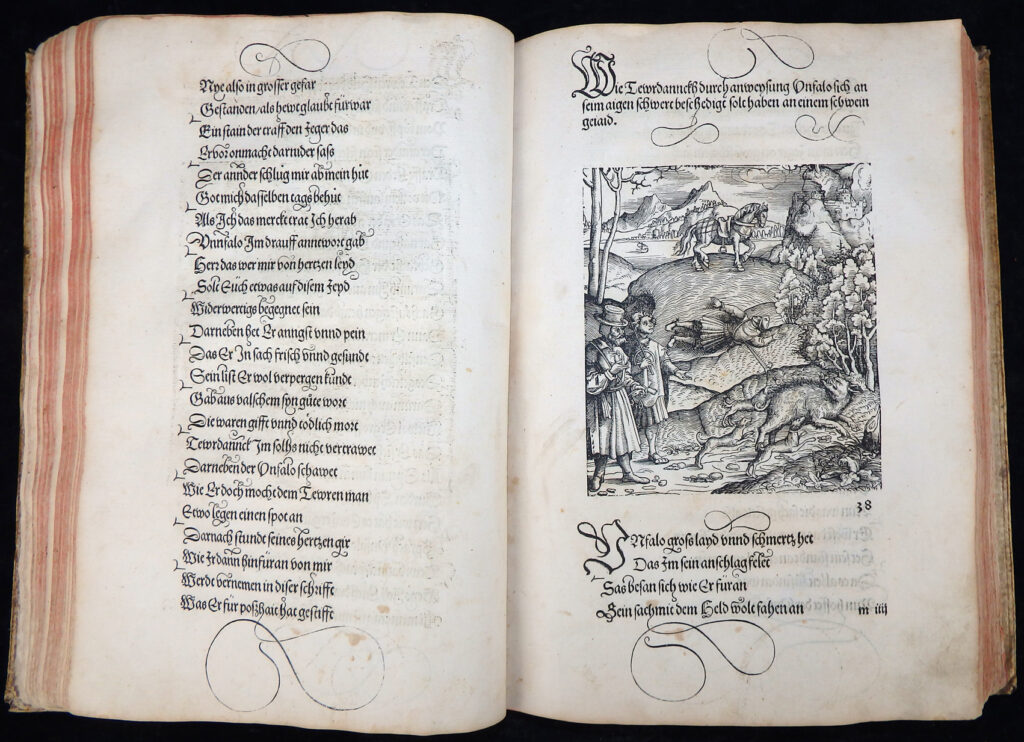 Nye also in grosser gefar
Gestanden/als hewt glaubt fürwar
Ein stain der traff den Jeger das
Er vor onmacht darnider sass
Der annder schlug mir ab mein hüt
Got mich dasselben tags behüt
Als Ich das merckt trat Ich herab
Vnnfalo Im drauff anntwort gab
Herr das wer mir von hertzen leyd
Solt Euch etwas auf diser zeyd
Widerwertigs begegnet sein
Darneben het Er anngst vnnd pein
Das Er In sach frisch vnnd gesundt
Sein list Er wol verpergen kunde
Gab aus valschem syn güte wort
Die waren gifft vnnd tödlich mort
Tewrdannck Im solhs nicht vertrawet
Darneben der Vnfalo schawet
Wie Er doch mocht dem Tewren man
Etwo legen einen spot an
Darnach stund seines hertzen gir
Wie Ir dann hinfüran von mir
Werdt vernemen in diser schrifft
Was Er für poßhait hat gestifft
Wie Tewrdannckh durch anweysung Vnfalo sich an
seim aigen schwert beschedigt solt haben an einem schwein
geiaid.
38
VNfalo gross layd vnnd schmertz het
Das Im sein anschlag felet
Sas besan sich wie Er füran
Sein sach mit dem Held wolt fahen an
m iiij